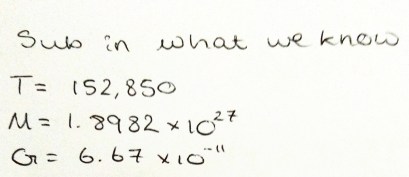 Sub in what we know
T = 152,850
M = 1.8982 × 10²⁷
G = 6.67 × 10⁻¹¹